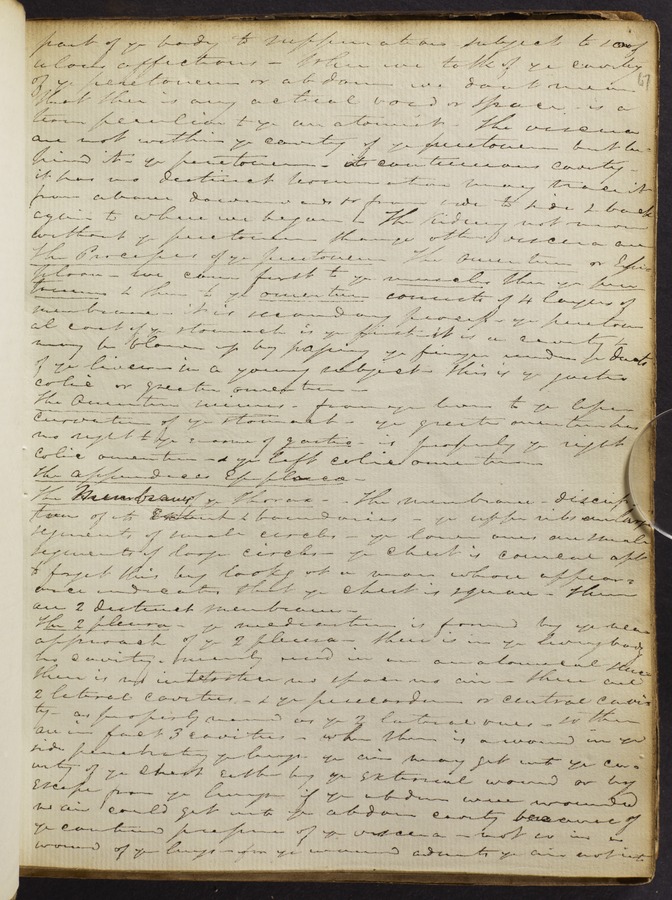 part of ye body to suppuration subject to scrof
ulous affections - When we talk of ye cavity
67
of ye peritoneum or abdom we dont mean
that there is any actual void or space is a
term peculiar to ye anatomist. The viscera
are not within ye cavity of ye peritoneum but be
hind it - ye peritoneum its continuous cavity -
it has no distinct termination may trace it
from above downwards or from side to side & back
again to where we began - The Kidney not more
without ye peritoneum than ye other viscera are
The Processes of ye peritoneum The Omentum or Epip
loon - we come first to ye muscles then ye peri
toneum & then to ye omentum consists of 4 layers of
membrane - it is secondary process - ye peritone
al coat of ye stomach is ye first it is a cavity &
may be blown up by passing ye finger under ye ducts
of ye liver in a young subject - This is ye gastro
colic or greater omentum -
The Omentum minus - from ye liver to ye lesser
curvature of ye stomach - ye greater omentum has
no right to ye name of gastric - is properly ye right
colic omentum - & ye left colic omentum
The appendices Epiploica -
The Membranes of Thorax - The membrane descrip
tion of its Extent & boundaries - ye upper ribs are large
segments of small circles - ye lower ones are small
segments of large circles - ye chest is conical apt
to forget this by looking at a man whose appear=
ance indicates that ye chest is square - There
are 2 distinct membranes -
The 2 pleura - ye mediastinum is formed by ye near
approach of ye 2 pleura - there is in ye living body
no cavity - merely used in an anatomical sense
there is no interstice no space no air - there are
2 lateral cavities - & ye pericardium or central cavi
ty - as properly named as ye 2 lateral ones - so there
are in fact 3 cavities - when there is a wound in ye
side penetrating ye lungs ye air may get into ye ca=
vity of ye chest either by ye External wound or by
Escape from ye lungs if ye abdomen were wounded
no air could get into ye abdom cavity because of
ye continued pressure of ye viscera - not so in a
wound of ye lungs - for ye wound admits ye air